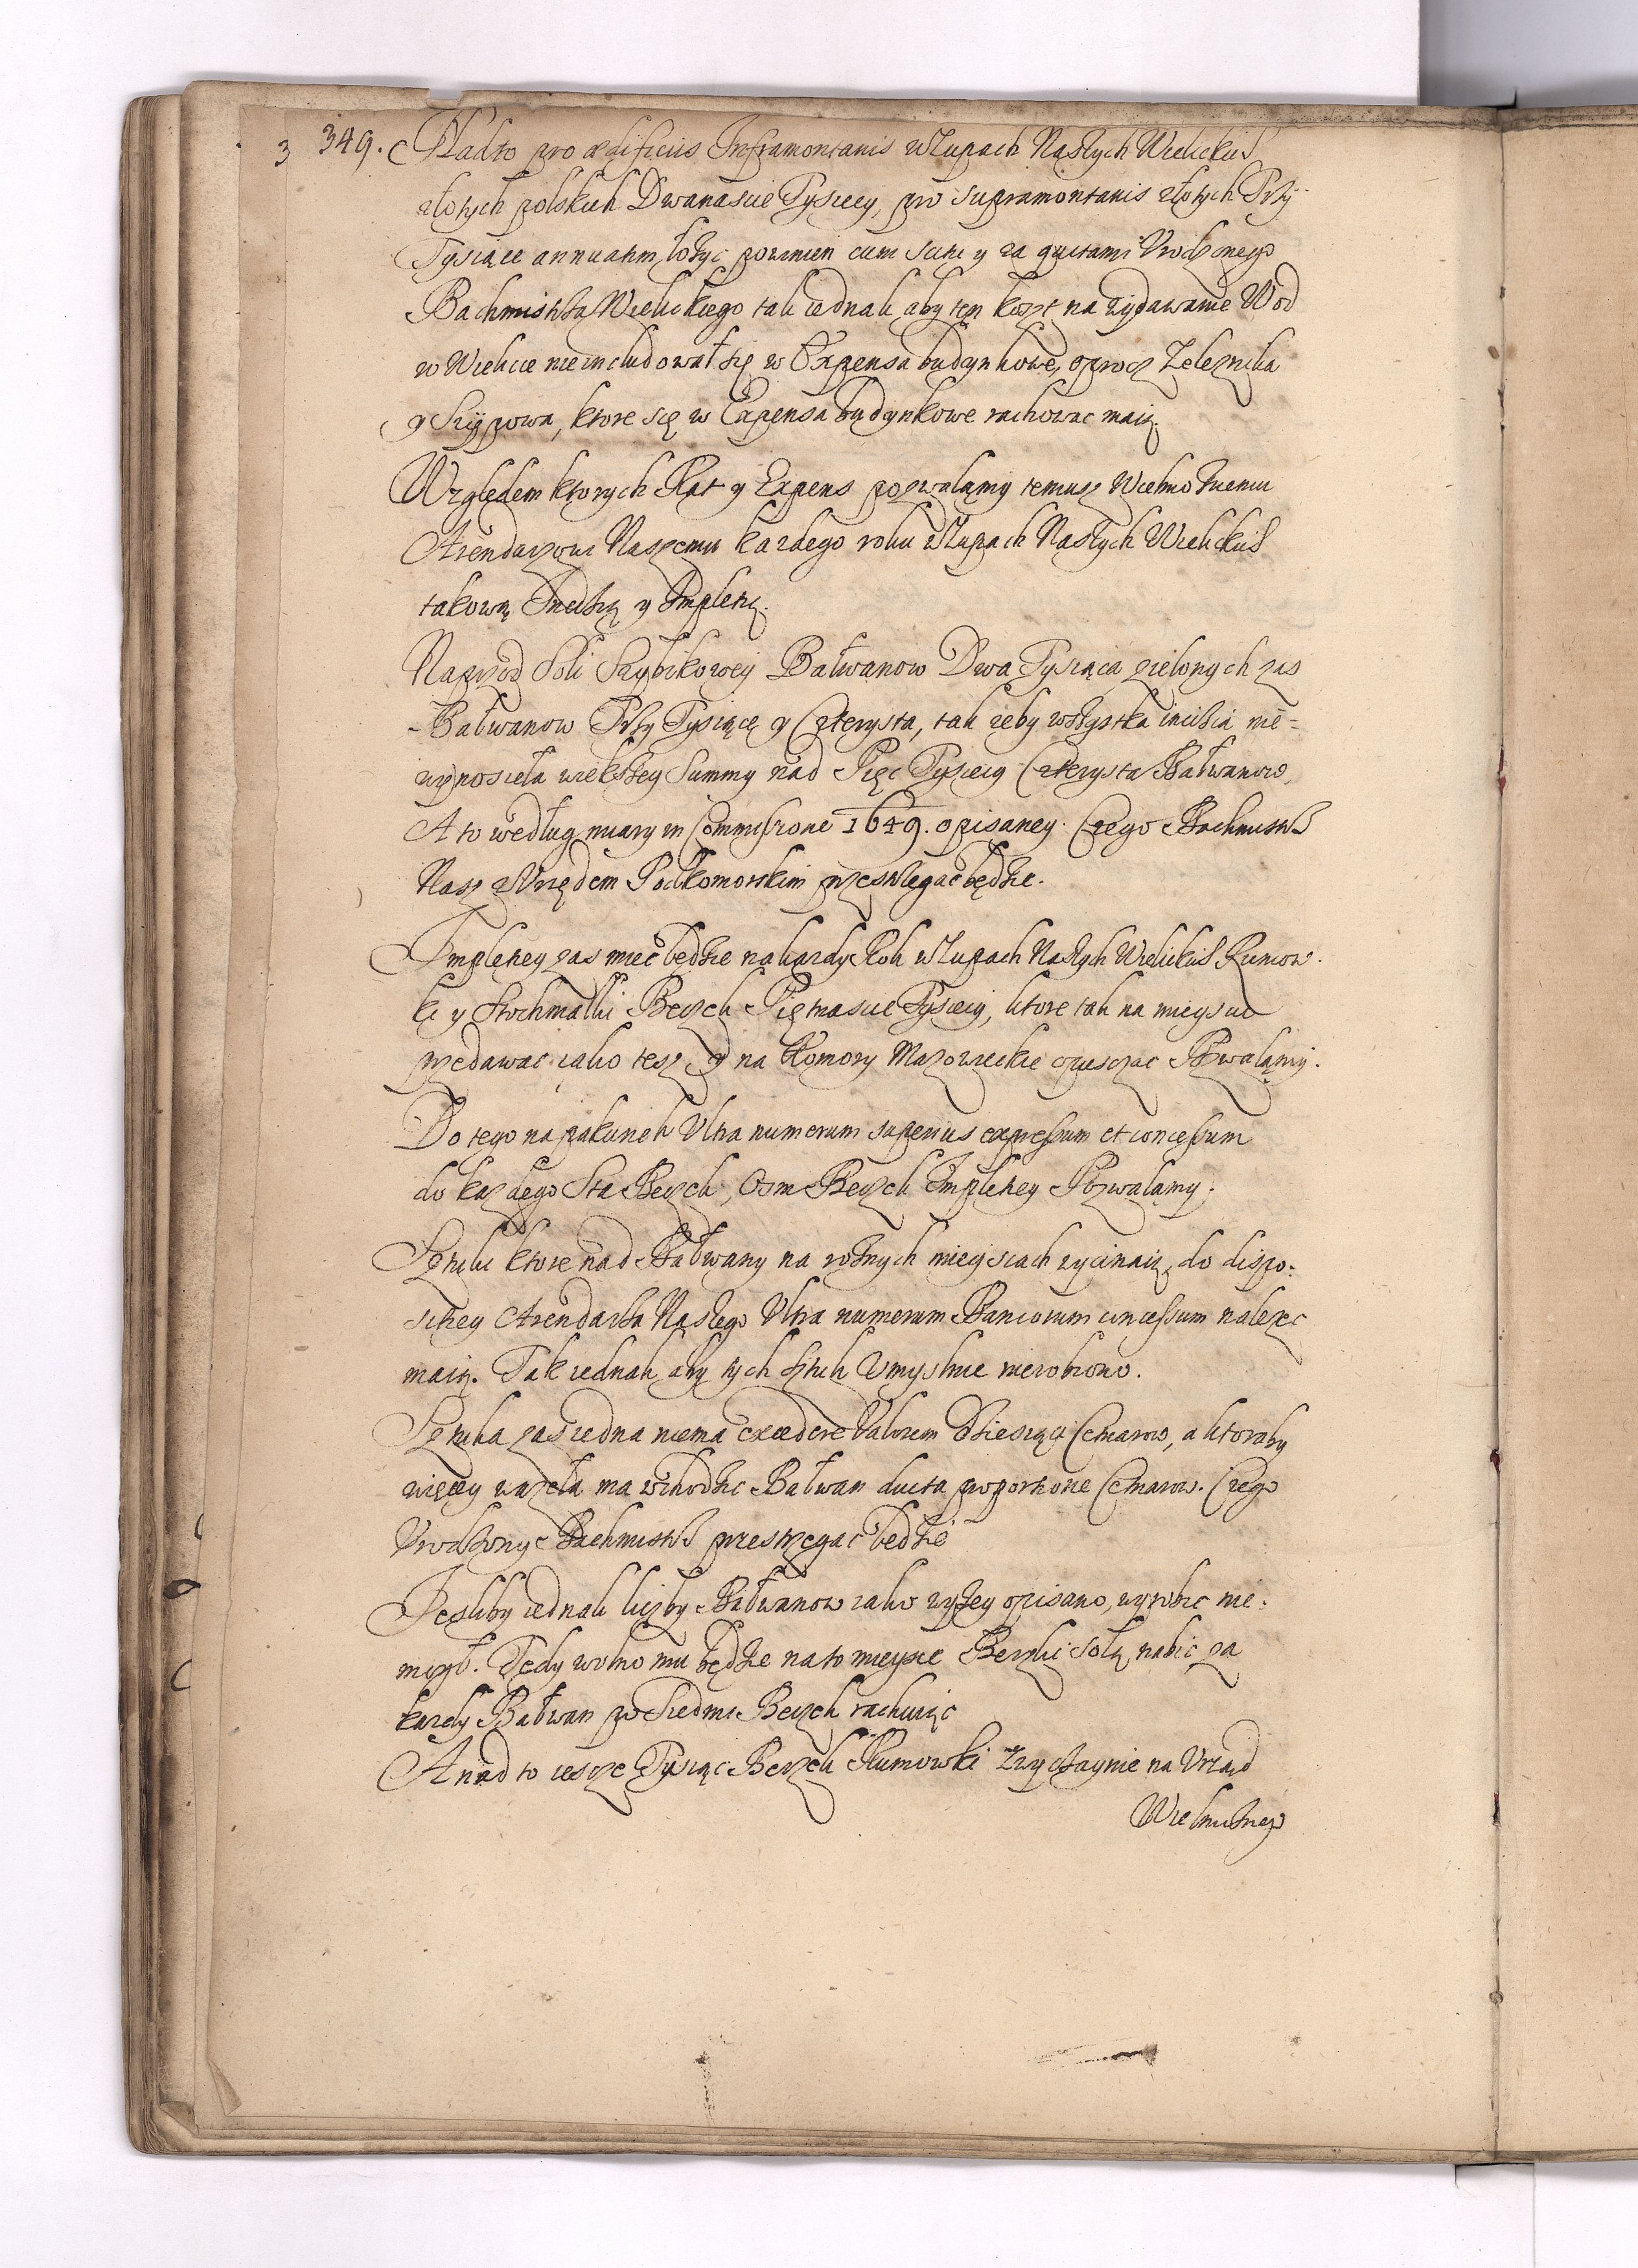 3 349. Nadto pro ædificiis Inframontanis w Zupach Naszych Wielickich
złotych polskich Dwanascie Tysięcy, pro supramontanis złotych Trzy
Tysiące annuatim łozyc powinien cum scitu y za quitami Vrodzonego
Bachmistrza Wielickiego tak iednak aby ten koszt na wydawanie Wod
w Wieliczce nie includował się w Expensa budynkowe, oprocz Zelesnika
y Szypowa, ktore się w Expensa budynkowe rachowac maią.
Względem ktorych Rat y Expens pozwalamy temusz Wielmoznemu
Arendarzowi Naszemu kazdego roku w Zupach Naszych Wielickich
takową Incisią y Impletią.
Naprzod Soli Szybikowey Bałwanow Dwa Tysiąca zielonych zas
Bałwanow Trzy Tysiące y Czterysta, tak zeby wszystka incisia nie=
wynosieła większey Summy nad Pięc Tysięcy Czterysta Bałwanow,
A to według miary in Commissione 1649. opisaney. Czego Bachmistrz
Nasz z Vrzędem Podkomorskim przestrzegac będzie.
Impletiey zas miec będzie na kazdy Rok w Zupach Naszych Wielickich Rumow-
ki y Stochmalki Beczek Piętnascie Tysięcy, ktore tak na mieyscu
przedawac iako tesz y na Komory Mazowieckie spuszczac Pozwalamy.
Do tego na pakunek Vltra numerum superius expressum et concessum
do kazdego Sta Beczek, Osm Beczek Impletiey Pozwalamy.
Sztuki ktore nad Bałwany na roznych mieyscach wycinaią, do dispo-
sitiey Arendarza Naszego Vltra numerum Bancorum concessum nalezec
maią. Tak iednak aby tych sztuk Vmyslnie nierobiono.
Sztuka zas iedna niema excedere Valorem Dziesiąci Cetnarow, a ktoraby
więcey wazeła ma wchodzic Bałwan ducta proportione Cetnarow. Czego
Vrodzony Bachmistrz przestrzegac będzie
Iesliby iednak liczby Bałwanow iako wyzey opisano, wyrobic nie-
mogł. Tedy wolno mu będzie na to mieysce Beczki solą nabic za
kazdy Bałwan po Siedmi Beczek rachuiąc
A nad to iescze Tysiąc Beczek Rumowki zwyczaynie na Vrząd
Wielmoznego